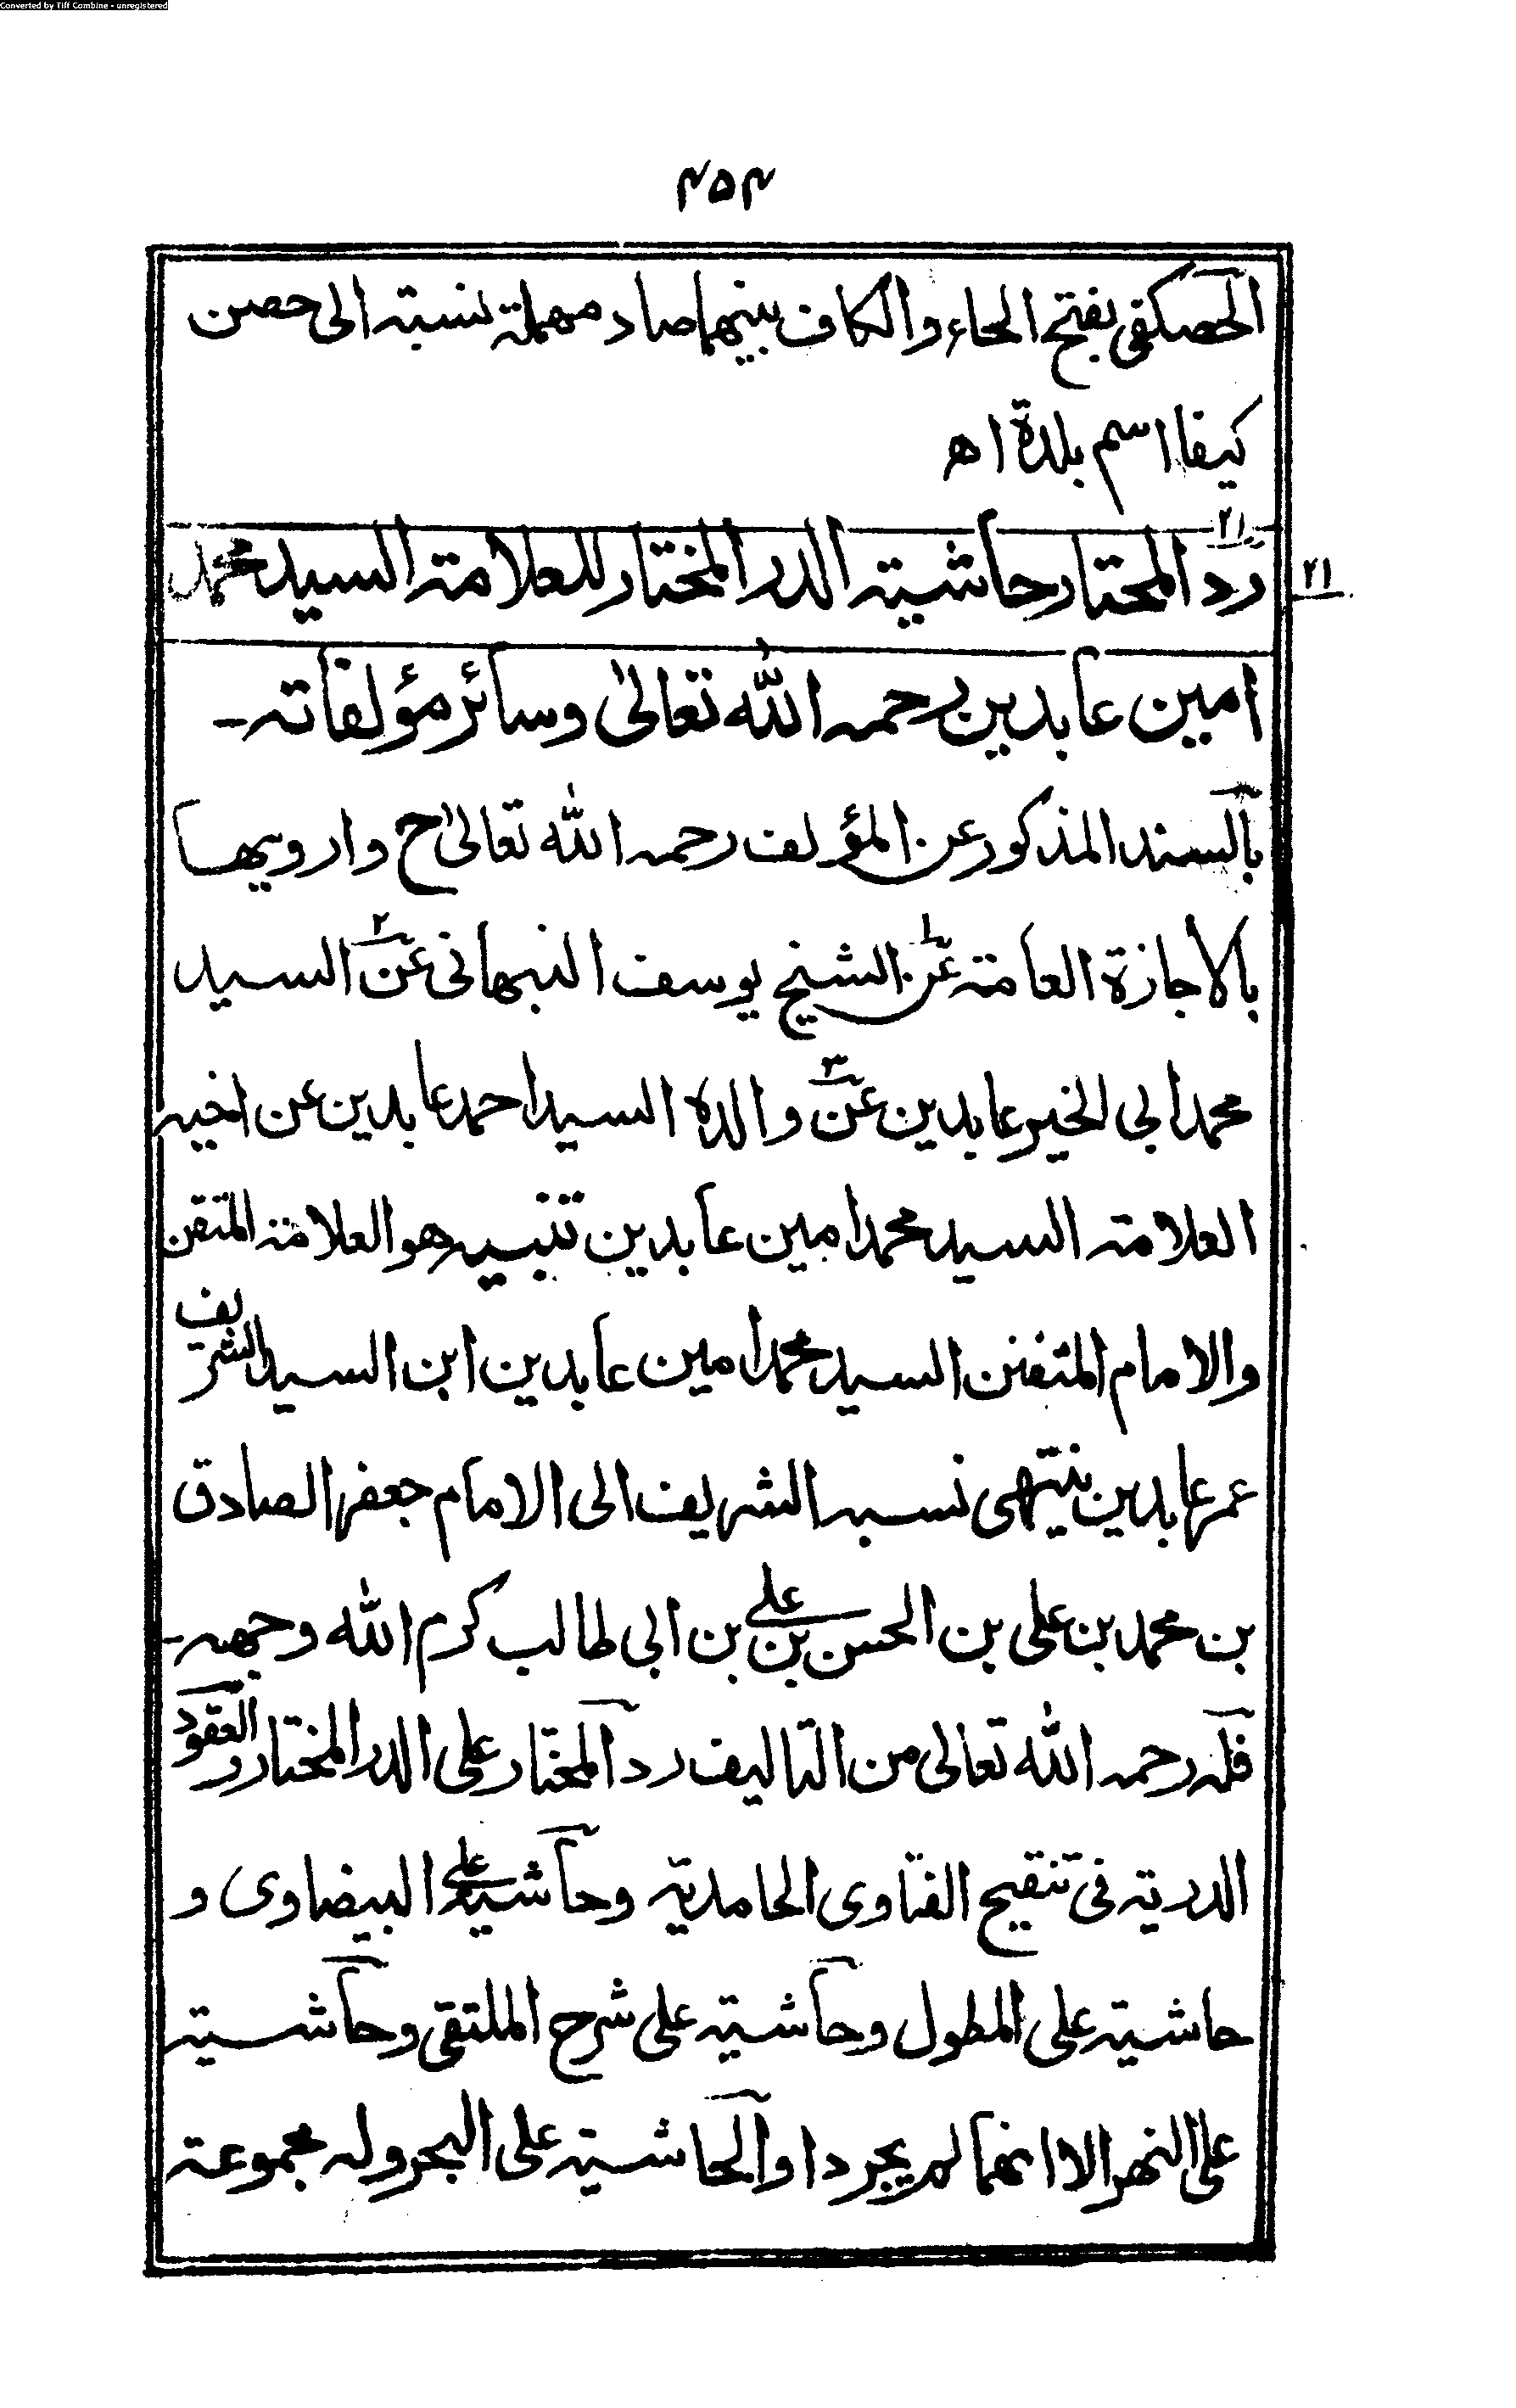 Converted by Tiff Combine - unregistered
۴۵۴
الحصكفى بفتح الحاء والكاف بينهما صاد مهملة نسبته الى حصن
كيفا اسم بلدة اھ
۲۱
رد المحتار حاشيته الدر المختار للعلامته السيد محمد
۲۱
امين عابدين رحمه الله تعالىٰ وسائر مؤلفاته۔
بالسند المذكور عن المؤلف رحمه الله تعالىٰ ح وارويها
بالاجازة العامته عن۱ الشيخ يوسف النبهانى عن۲ السيد
محمد ابى الخير عابدين عن۳ والده السيد احمد عابدين عن اخيه
العلامته السيد محمد امين عابدين تنبيه هو العلامة المتقن
والامام المتفنن السيد محمد امين عابدين ابن السيد الشريف
عمر عابدين ينتهى نسبه الشريف الى الامام جعفر الصادق
بن محمد بن على بن الحسن بن على بن ابى طالب كرم الله وجهه۔
فله رحمه الله تعالى من التاليف رد المختار على الدر المختار و العقود
الدريته فى تنقيح الفتاوى الحامديّه وحاشيه على البيضاوى و
حاشيته على المطول وحاشيته على شرح الملتقى وحاشيته
على النهر الا انهما لم يجردا والحاشيته على البحر وله مجموعته